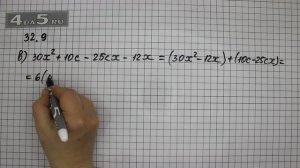 4GDZ5.RU
32.9
в) 30x² + 10c - 25cx - 12x = (30x² - 12x) + (10c - 25cx) =
= 6(